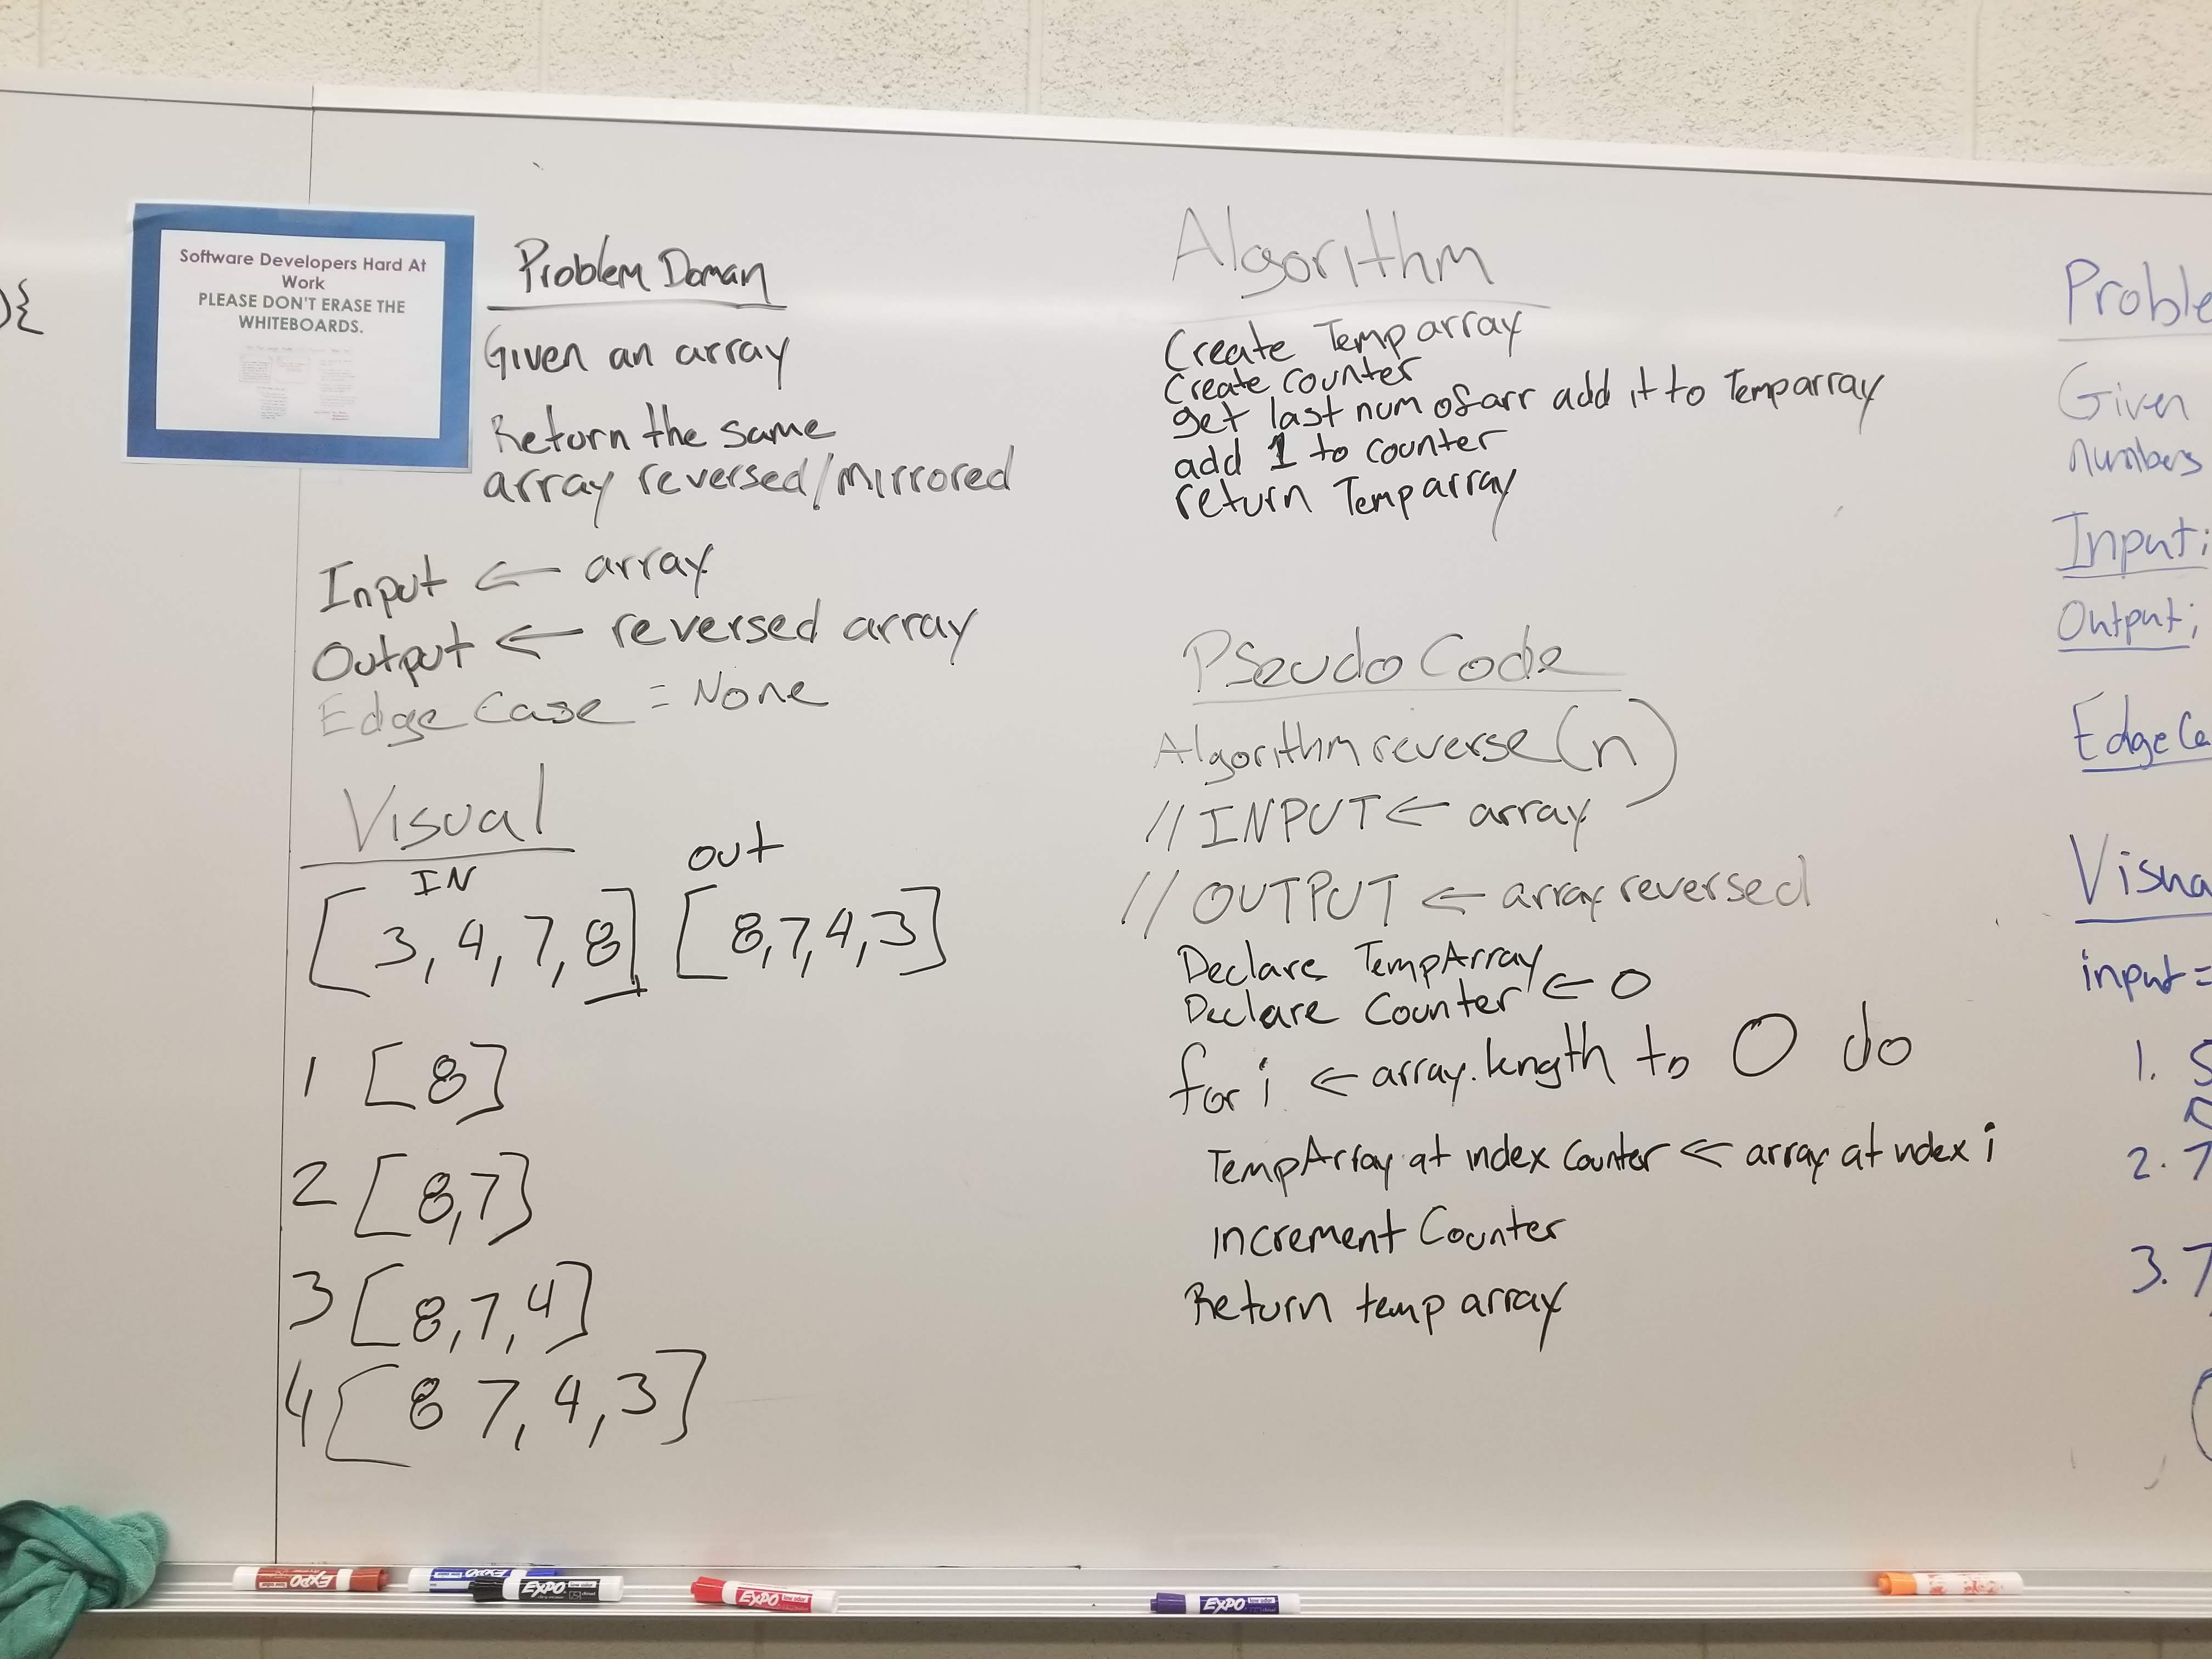 ){
Software Developers Hard At
Work
PLEASE DON'T ERASE THE
WHITEBOARDS.
Problem Doman
Given an array
Return the same
array reversed/mirrored
Input ← array
Output ← reversed array
Edge Case = None
Visual
IN
out
[3, 4, 7, 8] [8,7,4,3]
1 [8]
2 [8,7]
3 [8,7,4]
4 [8 7,4,3]
Algorithm
Create Temp array
Create counter
get last num of arr add it to Temp array
add 1 to counter
return Temp array
PSeudo Code
Algorithm reverse(n)
// INPUT ← array
// OUTPUT ← array reversed
Declare TempArray
Declare Counter ← 0
for i ← array.length to 0 do
TempArray at index Counter ← array at ndex i
increment Counter
Return temp array
Proble
Given
numbers
Input;
Output;
Edge Ca
Visua
input =
1. S
2. 7
3. 7
EXPO
EXPO
EXPO
EXPO